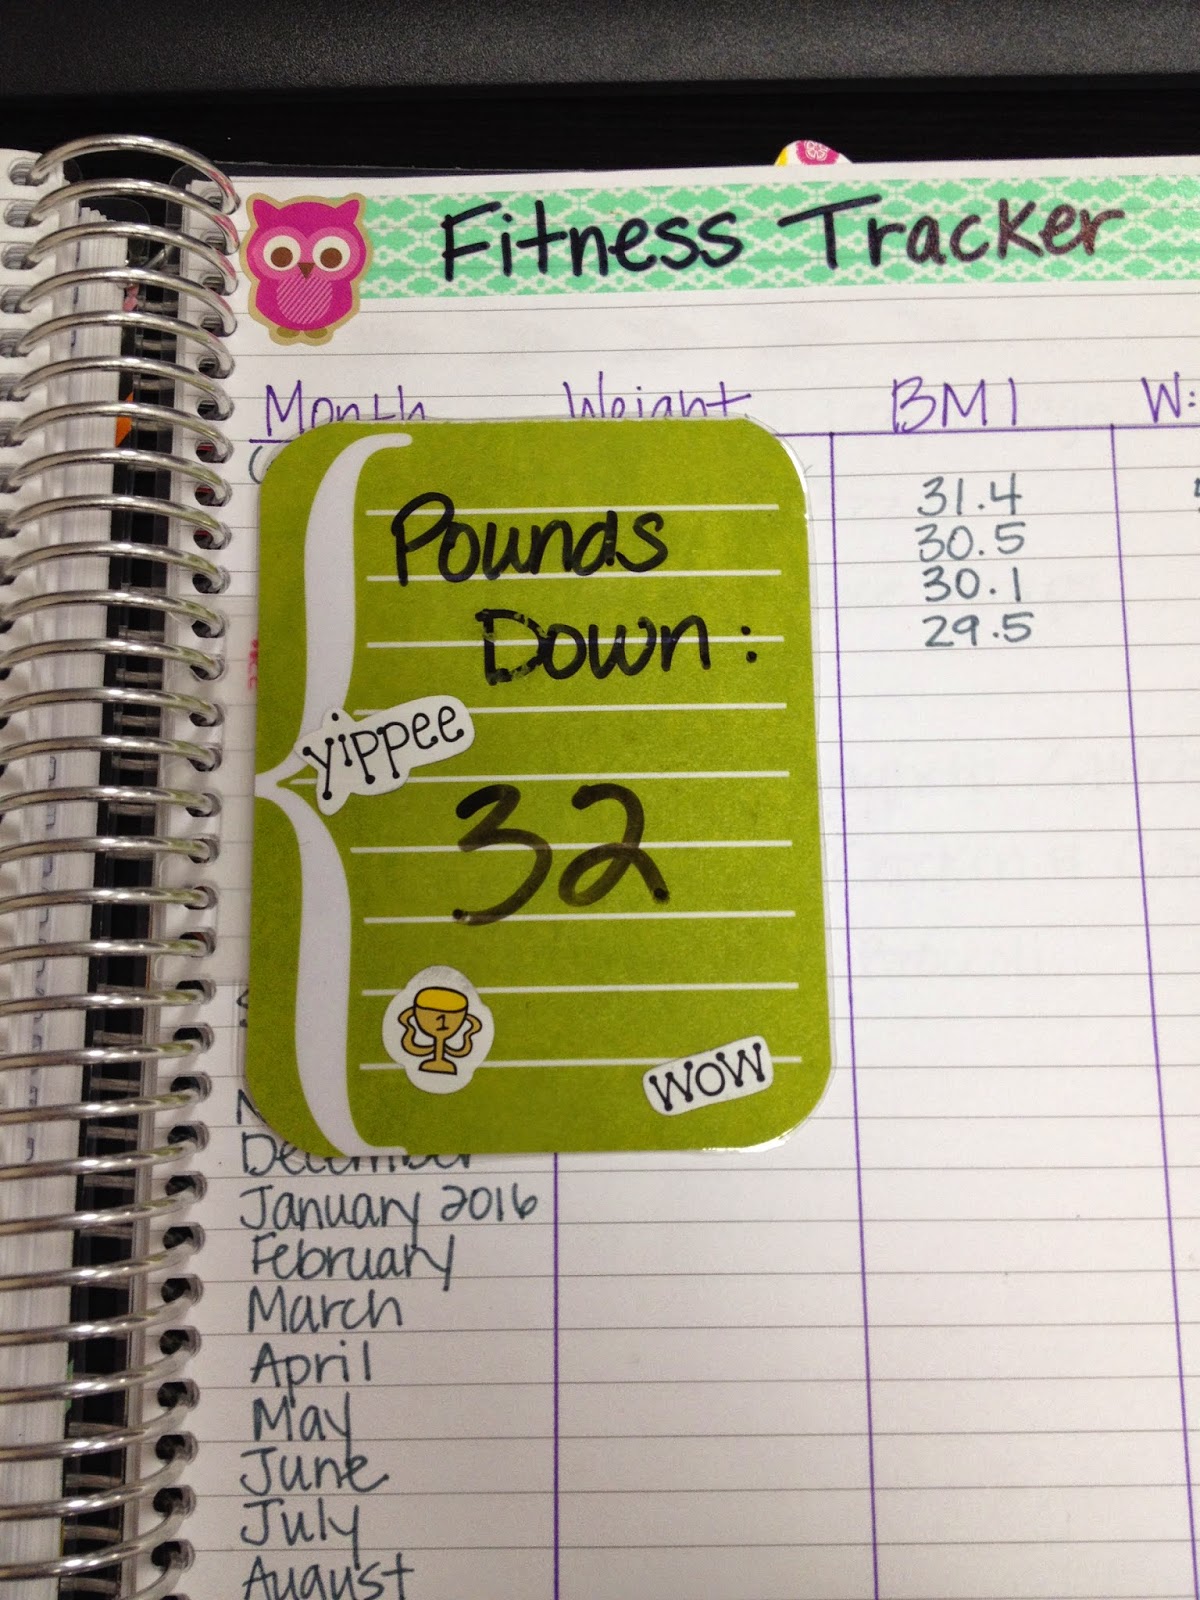 Fitness Tracker
Month Weight BMI W:
31.4
30.5
30.1
29.5
Pounds
Down:
yippee
32
1
wow
December
January 2016
February
March
April
May
June
July
August